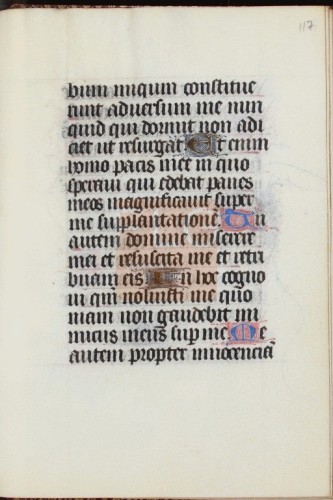 117
bum iniqum constitue
runt adversum me nun
quid qui dormit non adi
ciet ut resurgat. Et enim
homo pacis mee in quo
speravi qui edebat panes
meos magnificavit super
me supplantatione. Tu
autem domine miserere
mei et resuscita me et retri
buam eis. In hoc cogno
vi qm̄ voluisti me quo
niam non gaudebit ini
micus meus sup me. Me
autem propter innocenciā